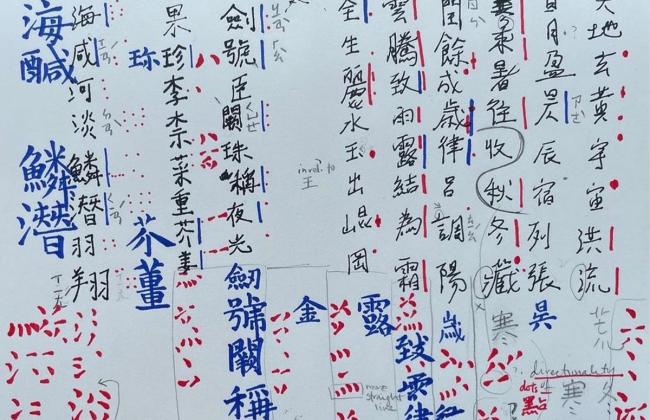 天地玄黃宇宙洪流
日月盈昃辰宿列張
昃
來暑往收秋冬藏
寒
閏餘成歲律呂調陽
歲
雲騰致雨露結為霜
致雲律
金生麗水玉出崑岡
露
王
金
劍號巨闕珠稱夜光
劍號闕稱
果珍李柰菜重芥薑
珍
芥薑
海鹹河淡鱗潛羽翔
海鹹
鱗潛
more straight line
directionality
dots
點
寒